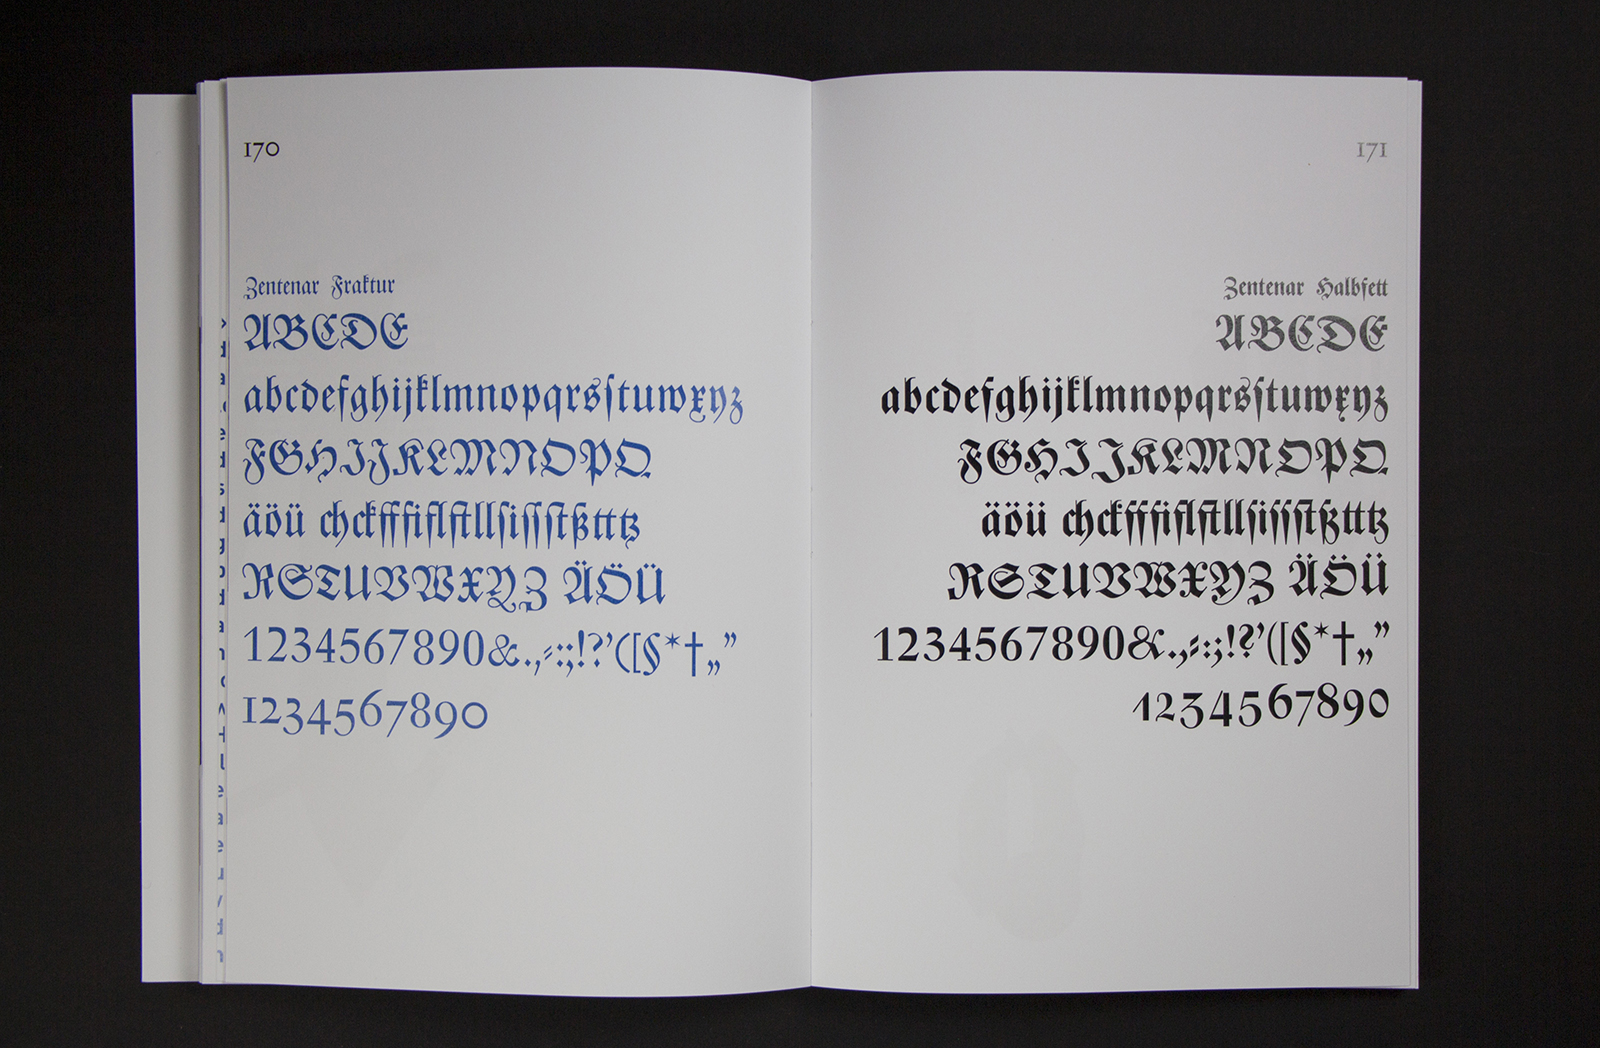 170
Zentenar Fraktur
ABCDE
abcdefghijklmnopqrsſtuwxyz
FGHIJKLMNOPQ
äöü chckfffiflftllſiſſſtßtttz
RSTUVWXYZ ÄÖÜ
1234567890&.,-:;!?’([§*†„”
1234567890
171
Zentenar Halbfett
ABCDE
abcdefghijklmnopqrsſtuwxyz
FGHIJKLMNOPQ
äöü chckfffiflftllſiſſſtßtttz
RSTUVWXYZ ÄÖÜ
1234567890&.,-:;!?’([§*†„”
1234567890